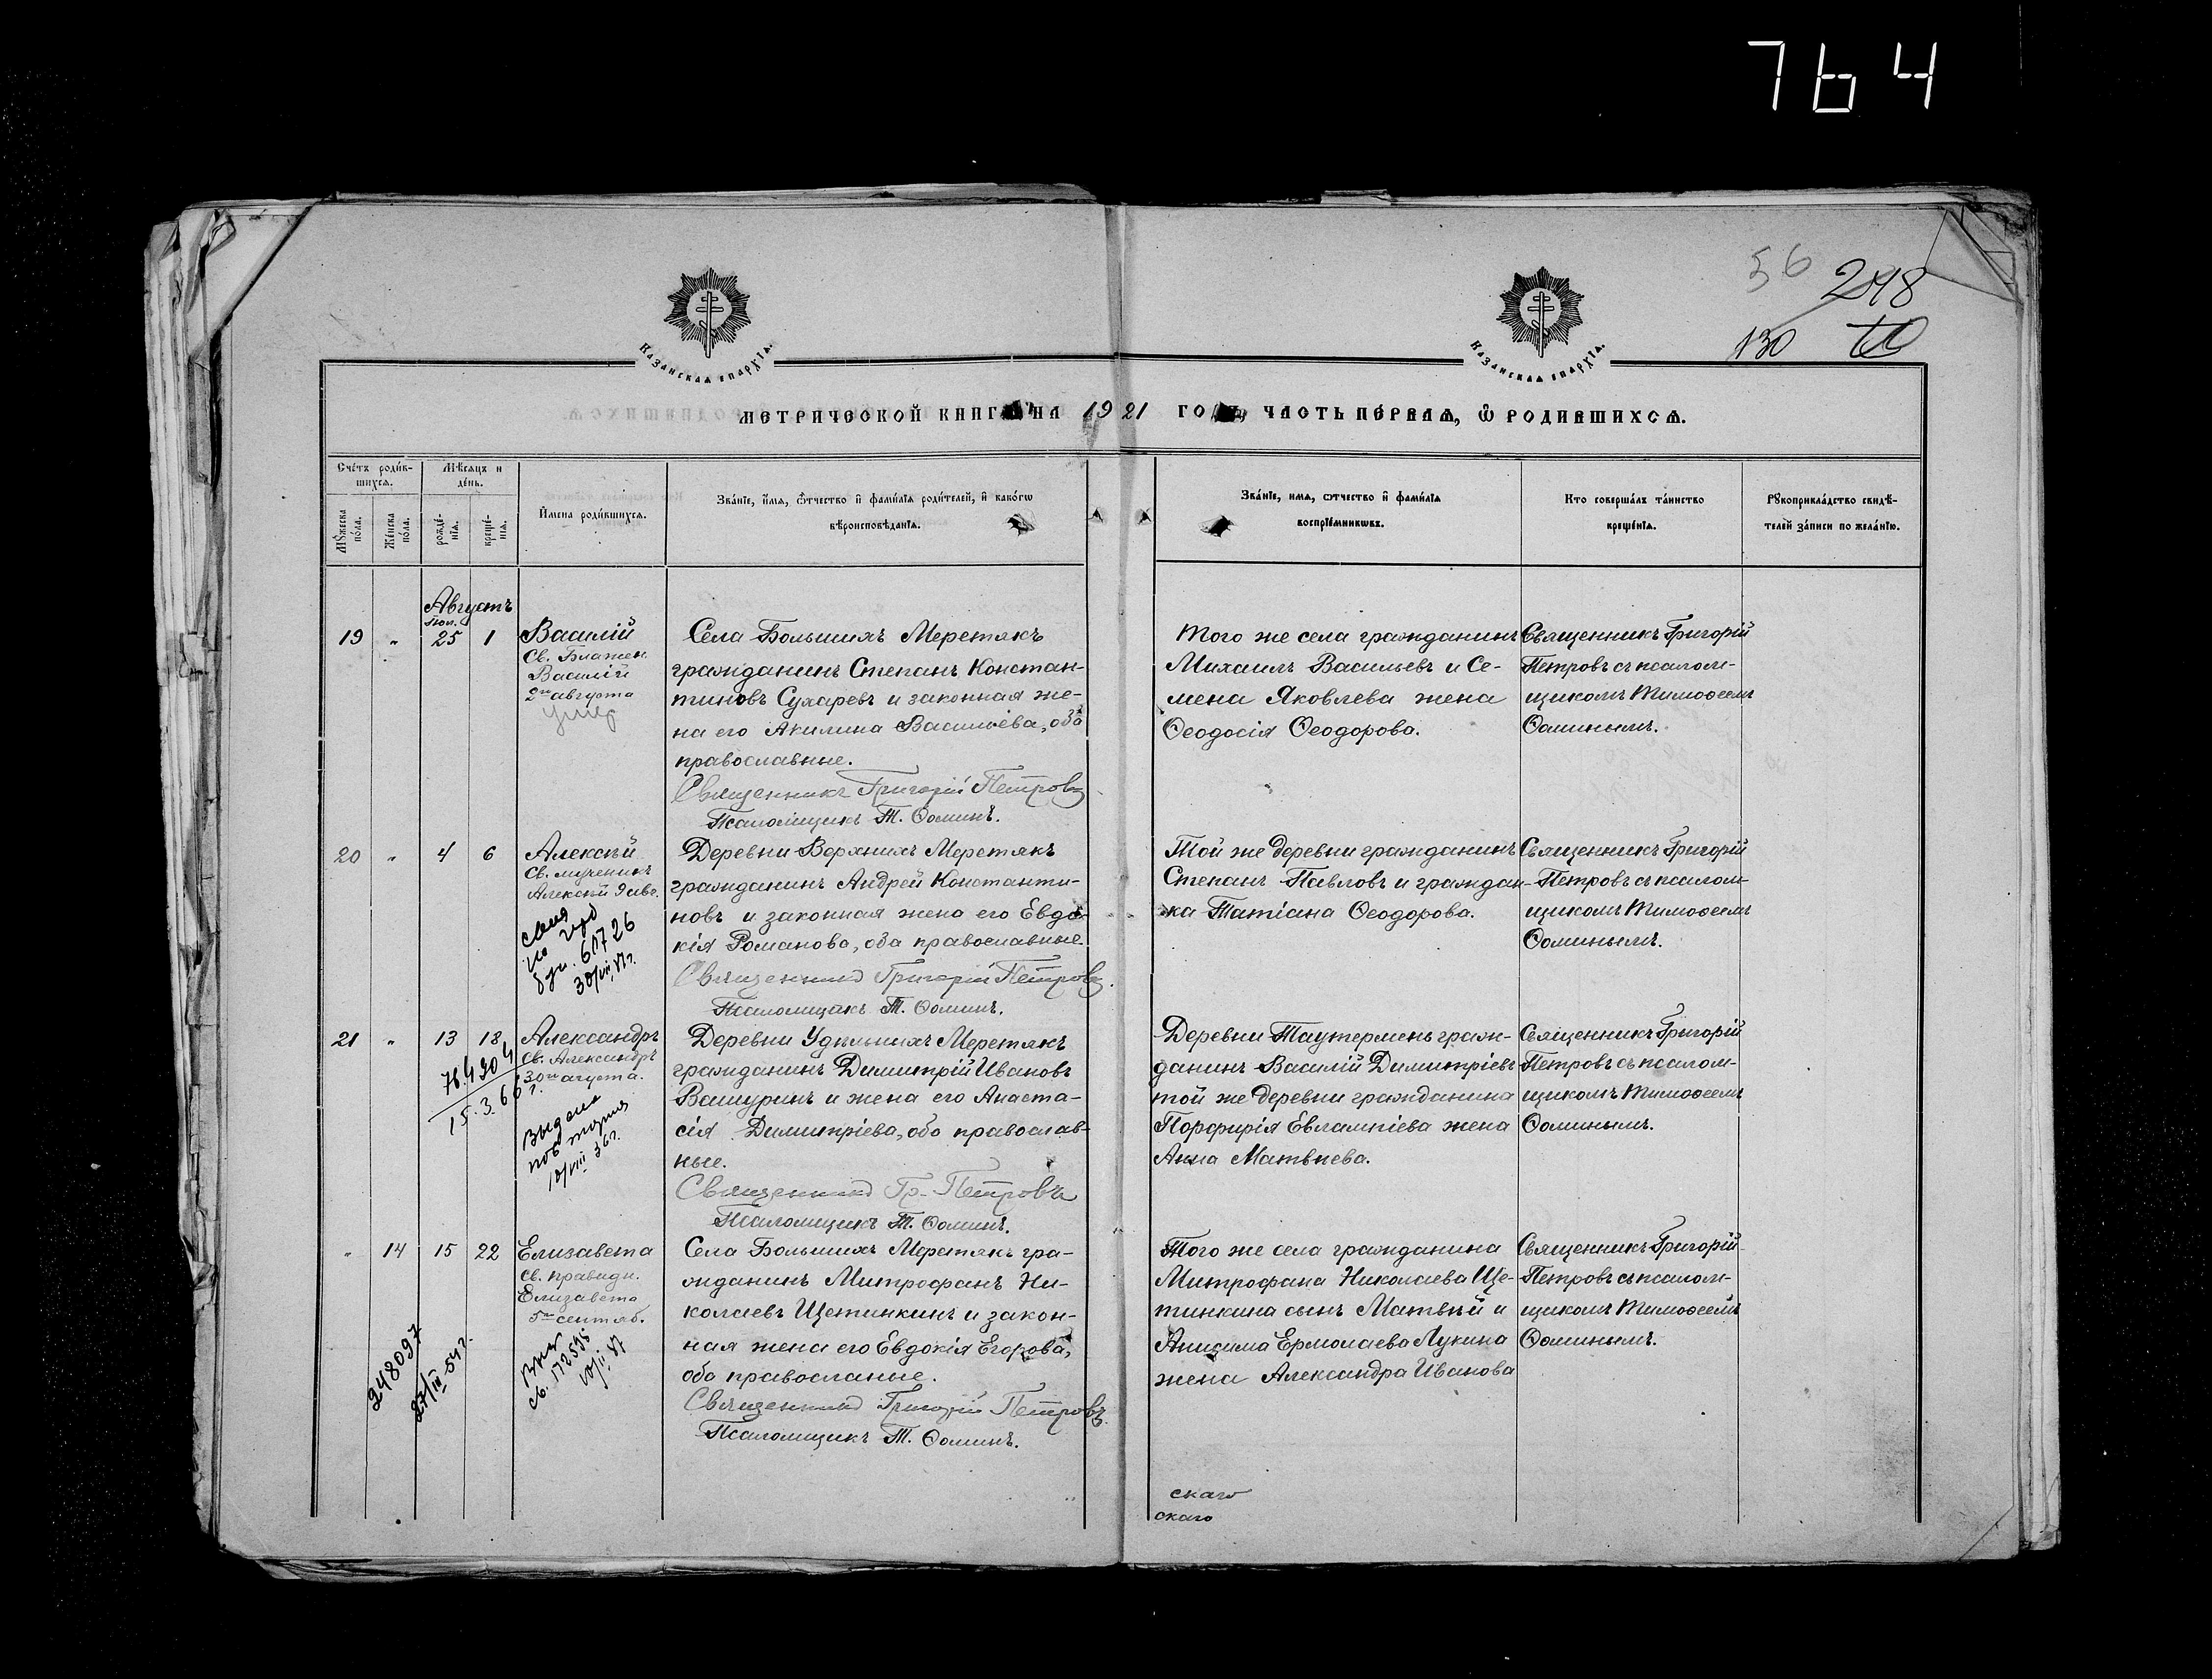 764
56
248
130
Казанская епархїѧ.
Казанская епархїѧ.
МЕТРИЧЕСКОЙ КНИГИ НА 1921 ГОДЪ, ЧАСТЬ ПЕРВАЯ, Ѿ РОДИВШИХСѦ.
Счётъ роди́в-
шихсѧ.
Мѣ́сѧцъ и
де́нь.
Мꙋ́жеска по́ла.
Же́нска по́ла.
рожде́-
нїѧ.
креще́-
нїѧ.
И́мена роди́вшихсѧ.
Зва́нїе, и́мѧ, ѻ́тчество и҆ фами́лїѧ роди́телей, и҆ како́гѡ
вѣроисповѣ́данїѧ.
Зва́нїе, имѧ, ѻтчество и҆ фами́лїѧ
воспрїе́мникѡвъ.
Кто соверша́лъ та́инство
креще́нїѧ.
Рꙋкоприкла́дство свидѣ́-
телей за́писи по жела́нїю.
Августъ
19 " 25 1
Василій
Св. Блажен.
Василій
2го августа
умер
Села Большихъ Меретякъ
гражданинъ Степанъ Констан-
тиновъ Сухаревъ и законная же-
на его Акилина Васильева, оба
православные.
Священникъ Григорій Петровъ
Псаломщикъ Т. Ѳоминъ.
Того же села гражданинъ
Михаилъ Васильевъ и Се-
мена Яковлева жена
Ѳеодосія Ѳеодорова.
Священникъ Григорій
Петровъ съ псалом-
щикомъ Тимоѳеемъ
Ѳоминымъ.
20 " 4 6
Алексѣй
Св. мученикъ
Алексѣй 9 авг.
61726
Деревни Верхнихъ Меретякъ
гражданинъ Андрей Константи-
новъ и законная жена его Евдо-
кія Романова, оба православные.
Священникъ Григорій Петровъ.
Псаломщикъ Т. Ѳоминъ.
Той же деревни гражданинъ
Степанъ Павловъ и граждан-
ка Татіана Ѳеодорова.
Священникъ Григорій
Петровъ съ псалом-
щикомъ Тимоѳеемъ
Ѳоминымъ.
21 " 13 18
Александръ
Св. Александръ
30го августа.
15.3.66 г.
Выдана
повторная
Деревни Удѣльныхъ Меретякъ
гражданинъ Димитрій Ивановъ
Вашуринъ и жена его Анаста-
сія Димитріева, оба православ-
ные.
Священникъ Гр. Петровъ
Псаломщикъ Т. Ѳоминъ.
Деревни Таутермень граж-
данинъ Василій Димитріевъ
той же деревни гражданина
Порфирія Евлампіева жена
Анна Матвѣева.
Священникъ Григорій
Петровъ съ псалом-
щикомъ Тимоѳеемъ
Ѳоминымъ.
" 14 15 22
Елизавета
Св. праведн.
Елизавета
5го сентяб.
248097
Села Большихъ Меретякъ гра-
жданинъ Митрофанъ Ни-
колаевъ Щетинкинъ и закон-
ная жена его Евдокія Егорова,
оба правосланые.
Священникъ Григорій Петровъ.
Псаломщикъ Т. Ѳоминъ.
Того же села гражданина
Митрофана Николаева Ще-
тинкина сынъ Матвѣй и
Анисима Ермолаева Лукина
жена Александра Иванова
Священникъ Григорій
Петровъ съ псалом-
щикомъ Тимоѳеемъ
Ѳоминымъ.
скаго
скаго